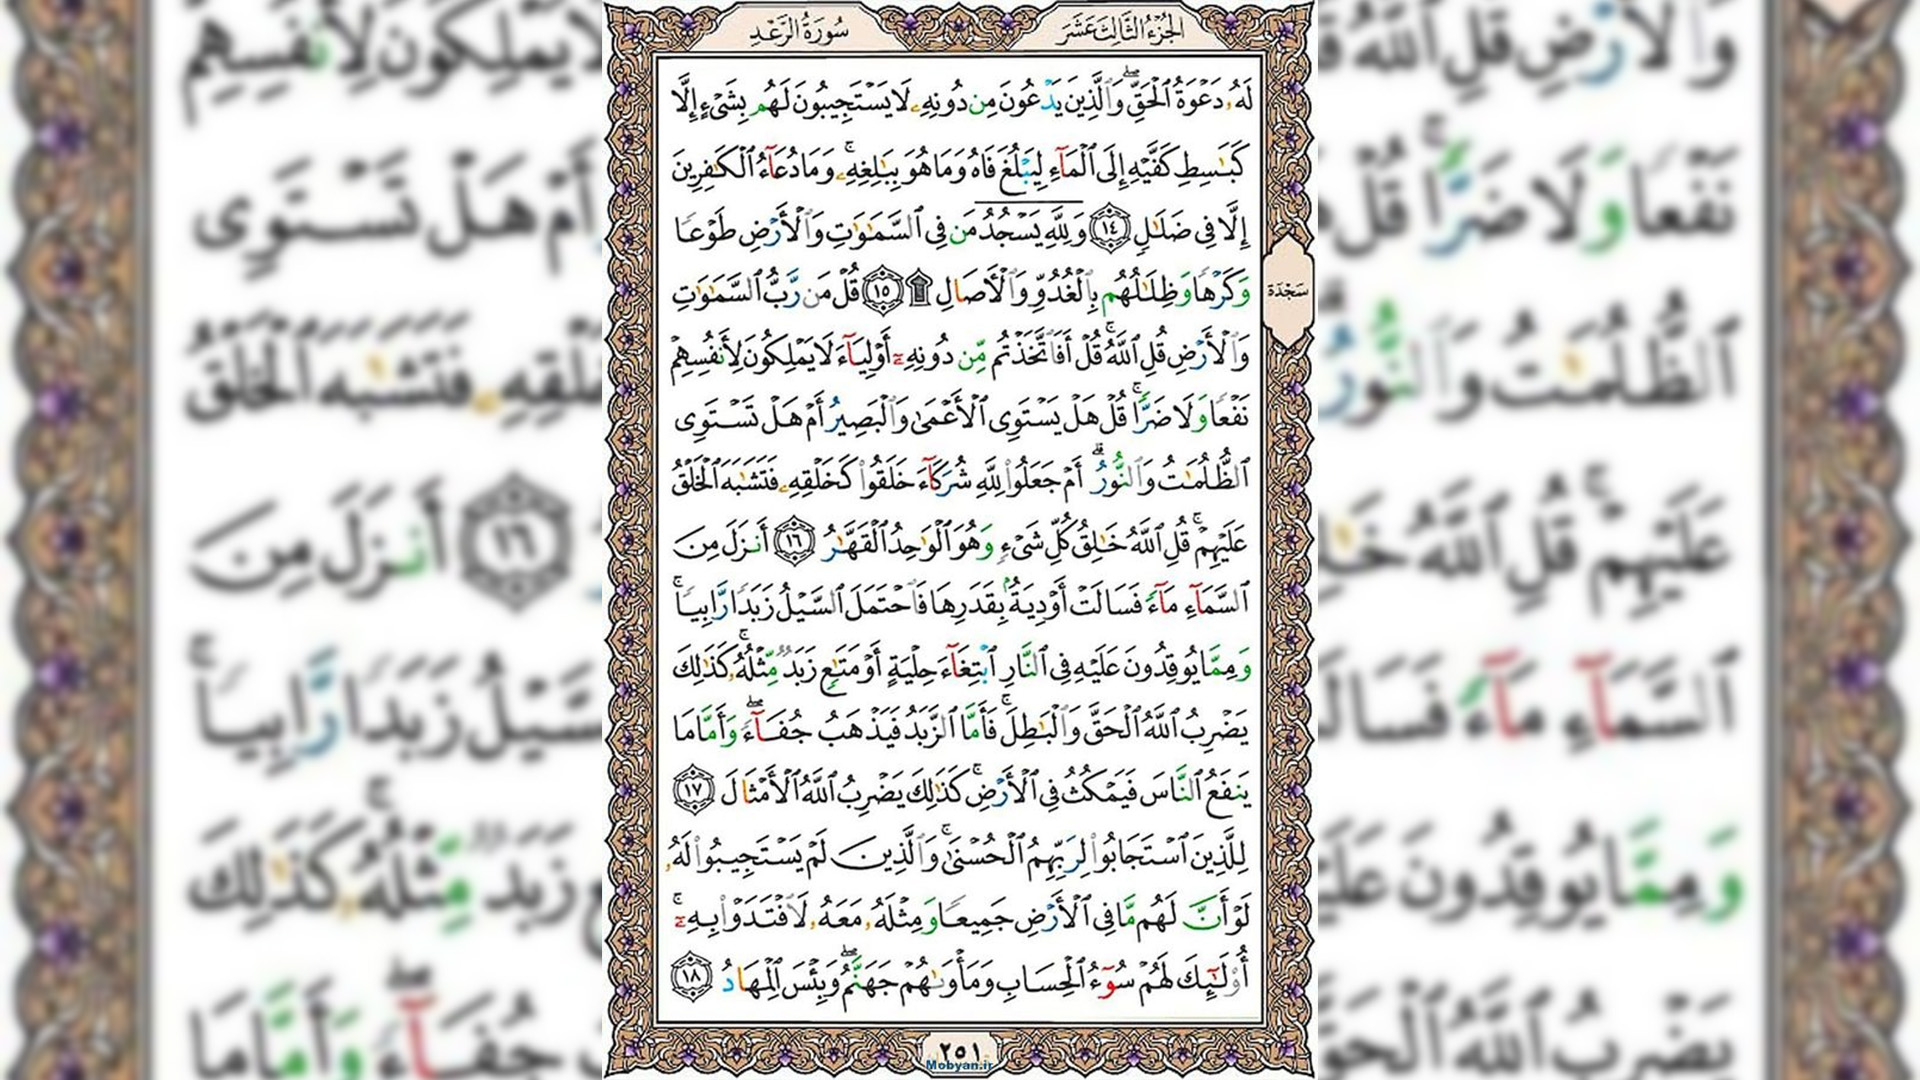 الجُزءُ الثَّالِثَ عَشَرَ
سُورَةُ الرَّعۡدِ
لَهُۥ دَعۡوَةُ ٱلۡحَقِّۖ وَٱلَّذِينَ يَدۡعُونَ مِن دُونِهِۦ لَا يَسۡتَجِيبُونَ لَهُم بِشَيۡءٍ إِلَّا
كَبَٰسِطِ كَفَّيۡهِ إِلَى ٱلۡمَآءِ لِيَبۡلُغَ فَاهُ وَمَا هُوَ بِبَٰلِغِهِۦۚ وَمَا دُعَآءُ ٱلۡكَٰفِرِينَ
إِلَّا فِي ضَلَٰلٖ ١٤ وَلِلَّهِۤ يَسۡجُدُۤ مَن فِي ٱلسَّمَٰوَٰتِ وَٱلۡأَرۡضِ طَوۡعٗا
وَكَرۡهٗا وَظِلَٰلُهُم بِٱلۡغُدُوِّ وَٱلۡأٓصَالِ ۩ ١٥ قُلۡ مَن رَّبُّ ٱلسَّمَٰوَٰتِ
وَٱلۡأَرۡضِ قُلِ ٱللَّهُۚ قُلۡ أَفَٱتَّخَذۡتُم مِّن دُونِهِۦٓ أَوۡلِيَآءَ لَا يَمۡلِكُونَ لِأَنفُسِهِمۡ
نَفۡعٗا وَلَا ضَرّٗاۚ قُلۡ هَلۡ يَسۡتَوِي ٱلۡأَعۡمَىٰ وَٱلۡبَصِيرُ أَمۡ هَلۡ تَسۡتَوِي
ٱلظُّلُمَٰتُ وَٱلنُّورُۗ أَمۡ جَعَلُواْ لِلَّهِ شُرَكَآءَ خَلَقُواْ كَخَلۡقِهِۦ فَتَشَٰبَهَ ٱلۡخَلۡقُ
عَلَيۡهِمۡۚ قُلِ ٱللَّهُ خَٰلِقُ كُلِّ شَيۡءٖ وَهُوَ ٱلۡوَٰحِدُ ٱلۡقَهَّٰرُ ١٦ أَنزَلَ مِنَ
ٱلسَّمَآءِ مَآءٗ فَسَالَتۡ أَوۡدِيَةُۢ بِقَدَرِهَا فَٱحۡتَمَلَ ٱلسَّيۡلُ زَبَدٗا رَّابِيٗاۚ
وَمِمَّا يُوقِدُونَ عَلَيۡهِ فِي ٱلنَّارِ ٱبۡتِغَآءَ حِلۡيَةٍ أَوۡ مَتَٰعٖ زَبَدٞ مِّثۡلُهُۥۚ كَذَٰلِكَ
يَضۡرِبُ ٱللَّهُ ٱلۡحَقَّ وَٱلۡبَٰطِلَۚ فَأَمَّا ٱلزَّبَدُ فَيَذۡهَبُ جُفَآءٗۖ وَأَمَّا مَا
يَنفَعُ ٱلنَّاسَ فَيَمۡكُثُ فِي ٱلۡأَرۡضِۚ كَذَٰلِكَ يَضۡرِبُ ٱللَّهُ ٱلۡأَمۡثَالَ ١٧
لِلَّذِينَ ٱسۡتَجَابُواْ لِرَبِّهِمُ ٱلۡحُسۡنَىٰۚ وَٱلَّذِينَ لَمۡ يَسۡتَجِيبُواْ لَهُۥ
لَوۡ أَنَّ لَهُم مَّا فِي ٱلۡأَرۡضِ جَمِيعٗا وَمِثۡلَهُۥ مَعَهُۥ لَٱفۡتَدَوۡاْ بِهِۦٓۚ
أُوْلَٰٓئِكَ لَهُمۡ سُوٓءُ ٱلۡحِسَابِ وَمَأۡوَىٰهُمۡ جَهَنَّمُۖ وَبِئۡسَ ٱلۡمِهَادُ ١٨
سَجۡدَة
٢٥١
Mobyan.ir